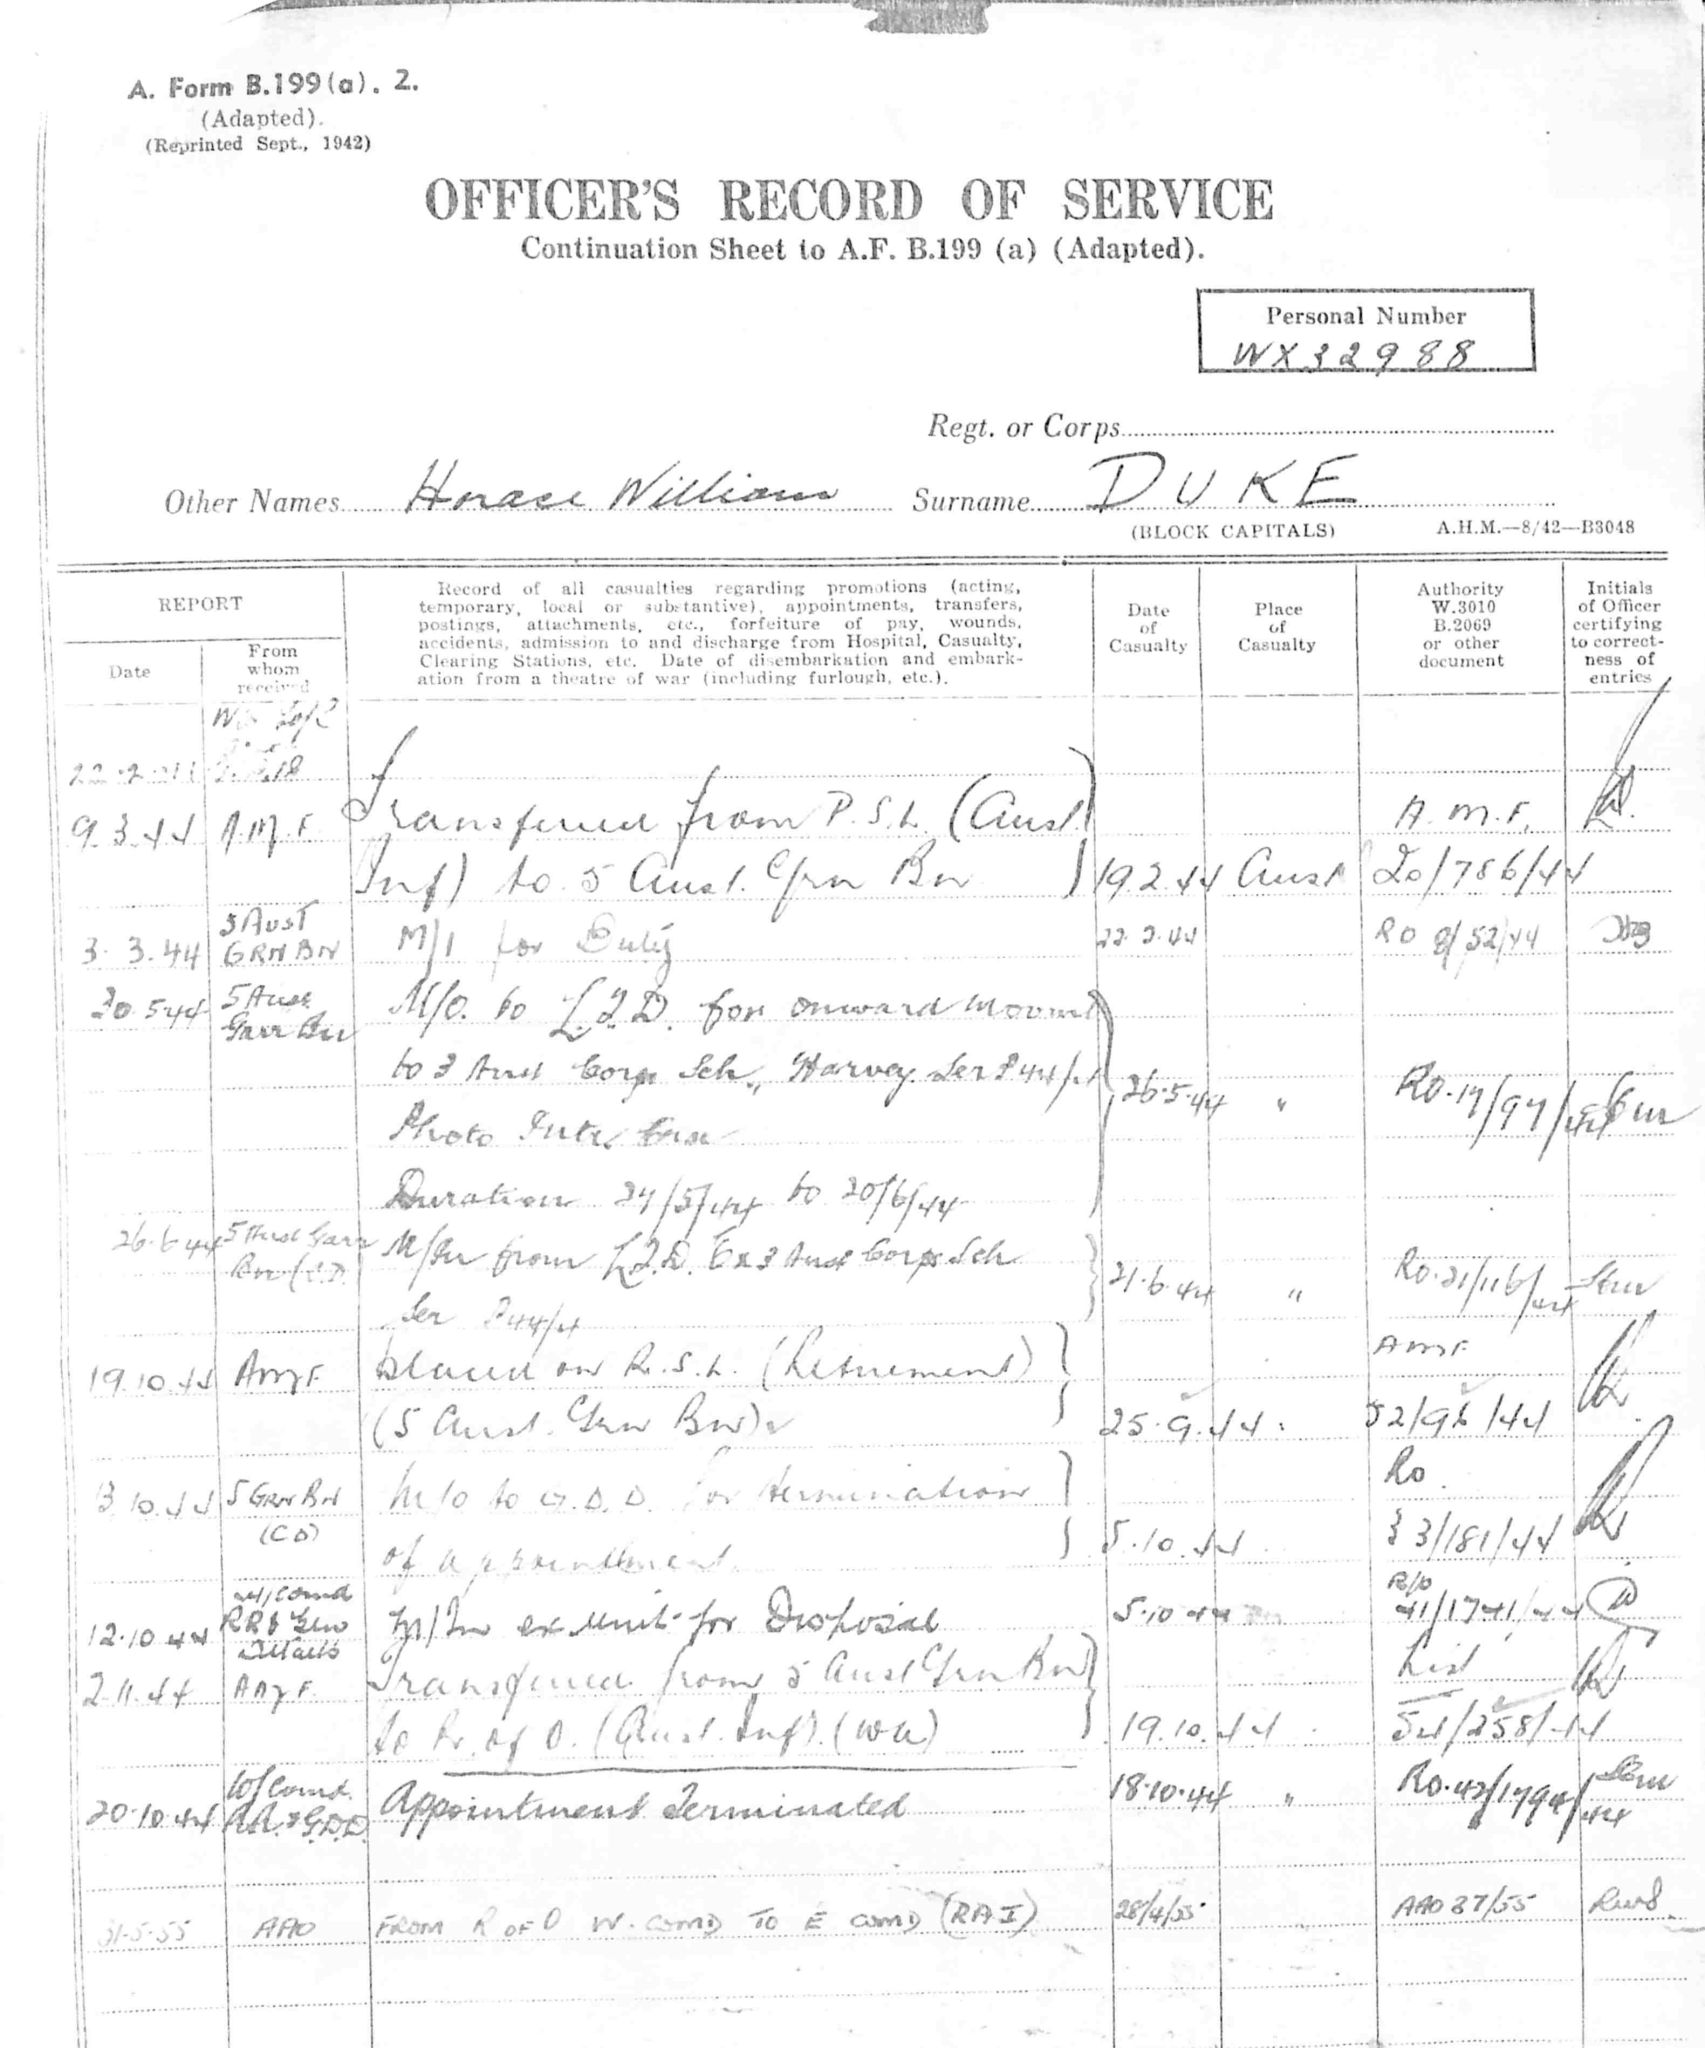 A. Form B.199(a). 2.
(Adapted).
(Reprinted Sept., 1942)
OFFICER'S RECORD OF SERVICE
Continuation Sheet to A.F. B.199 (a) (Adapted).
Personal Number
WX32988
Regt. or Corps
Other Names Horace William Surname DUKE
(BLOCK CAPITALS) A.H.M.—8/42—B3048
REPORT
Date
From whom received
Record of all casualties regarding promotions (acting,
temporary, local or substantive), appointments, transfers,
postings, attachments, etc., forfeiture of pay, wounds,
accidents, admission to and discharge from Hospital, Casualty,
Clearing Stations, etc. Date of disembarkation and embark-
ation from a theatre of war (including furlough, etc.).
Date of Casualty
Place of Casualty
Authority W.3010 B.2069 or other document
Initials of Officer certifying to correct-ness of entries
9.3.44 A.M.F. Transferred from P.S.L. (Aust. A.M.F.
Inf) to 5 Aust. Grn Bn 19.2.44 Aust 20/786/44
5 AUST
3.3.44 GRN BN M/I for Duty 22.2.44 RO 8/52/44
5 Aust
20.5.44 Garr Bn M/O. to L.T.D. for onward movmt
to 3 Aust Corps Sch., Harvey Ser 26.5.44 " RO.17/97/44
Photo Inter
Duration 24/5/44 to 20/6/44
26.6.44 5 Aust Garr M/In from L.T.D. Ex 3 Aust Corps Sch
Bn Ser 21.6.44 " RO.21/116/44
19.10.44 AMF Placed on R.S.L. (Retirement) AMF
(5 Aust. Grn Bn) 25.9.44 52/96/44
13.10.44 5 GRN BN M/O to G.D.D. for termination RO
(CD) of appointment. 5.10.44 33/181/44
W/Comd
12.10.44 RR & Gen Details M/In ex unit for Disposal 5.10.44 R/O 41/1741/44
2.11.44 AMF Transferred from 5 Aust Grn Bn List
to R. of O. (Aust. Inf) (WA) 19.10.44 54/258/44
W/Comd
20.10.44 RR. & G.D.D. Appointment Terminated 18.10.44 " RO.42/1794/44
31.5.55 AAO FROM R OF O W. COMD TO E COMD (RAI) 28/4/55 " AAO 37/55